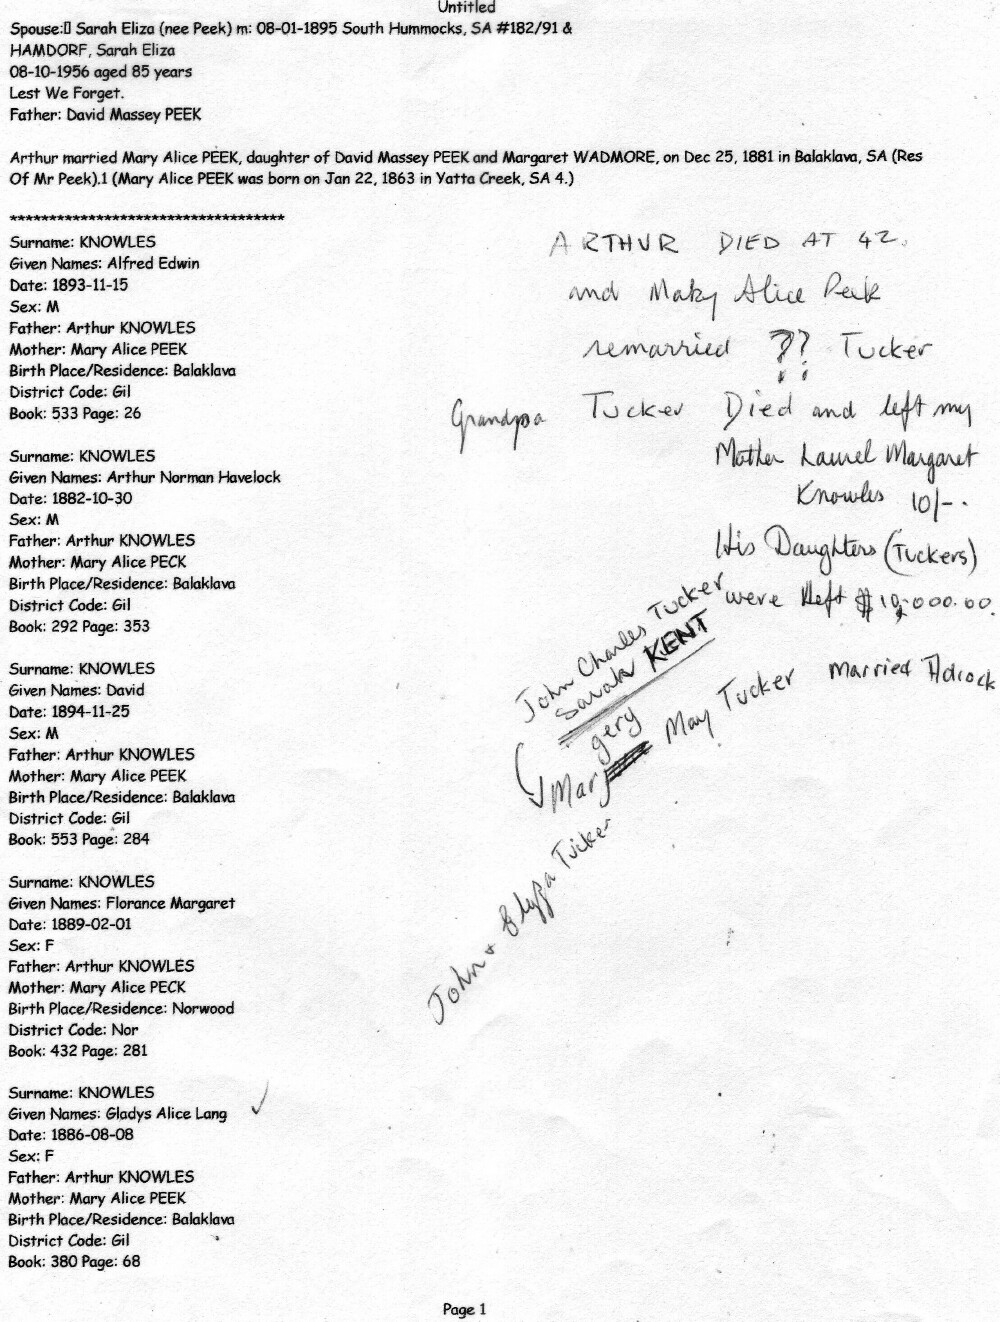 Untitled
Spouse:▯ Sarah Eliza (nee Peek) m: 08-01-1895 South Hummocks, SA #182/91 &
HAMDORF, Sarah Eliza
08-10-1956 aged 85 years
Lest We Forget.
Father: David Massey PEEK
Arthur married Mary Alice PEEK, daughter of David Massey PEEK and Margaret WADMORE, on Dec 25, 1881 in Balaklava, SA (Res
Of Mr Peek).1 (Mary Alice PEEK was born on Jan 22, 1863 in Yatta Creek, SA 4.)
***********************************
Surname: KNOWLES
Given Names: Alfred Edwin
Date: 1893-11-15
Sex: M
Father: Arthur KNOWLES
Mother: Mary Alice PEEK
Birth Place/Residence: Balaklava
District Code: Gil
Book: 533 Page: 26
Surname: KNOWLES
Given Names: Arthur Norman Havelock
Date: 1882-10-30
Sex: M
Father: Arthur KNOWLES
Mother: Mary Alice PECK
Birth Place/Residence: Balaklava
District Code: Gil
Book: 292 Page: 353
Surname: KNOWLES
Given Names: David
Date: 1894-11-25
Sex: M
Father: Arthur KNOWLES
Mother: Mary Alice PEEK
Birth Place/Residence: Balaklava
District Code: Gil
Book: 553 Page: 284
Surname: KNOWLES
Given Names: Florance Margaret
Date: 1889-02-01
Sex: F
Father: Arthur KNOWLES
Mother: Mary Alice PECK
Birth Place/Residence: Norwood
District Code: Nor
Book: 432 Page: 281
Surname: KNOWLES
Given Names: Gladys Alice Lang
Date: 1886-08-08
Sex: F
Father: Arthur KNOWLES
Mother: Mary Alice PEEK
Birth Place/Residence: Balaklava
District Code: Gil
Book: 380 Page: 68
ARTHUR DIED AT 42.
and Maky Alice Peek
remarried ?? Tucker
Grandpa Tucker Died and left my
Mother Laurel Margaret
Knowles 10/-.
His Daughters (Tuckers)
were left $10,000.00.
John Charles Tucker
Sarah KENT
Margery May Tucker Married Adcock
John & Tucker
Page 1